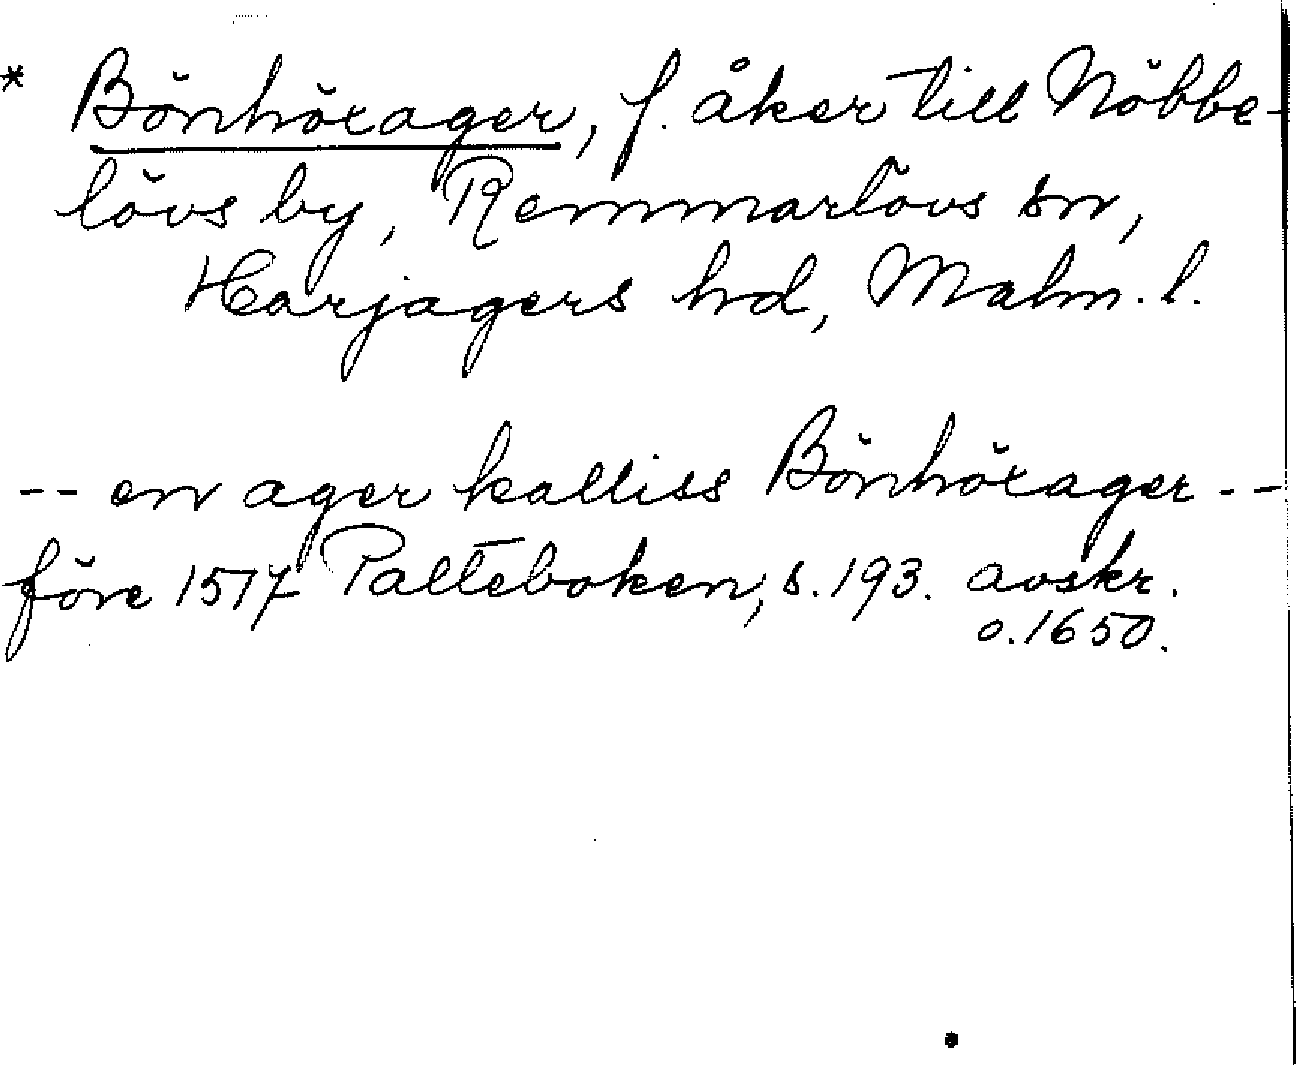 * Bönhörager, f. åker till Nöbbe-
lövs by, Remmarlövs sn,
Harjagers hd, Malm. l.
-- en ager kalliss Bönhörager --
före 1517 Palteboken, s. 193. avskr.
o. 1650.